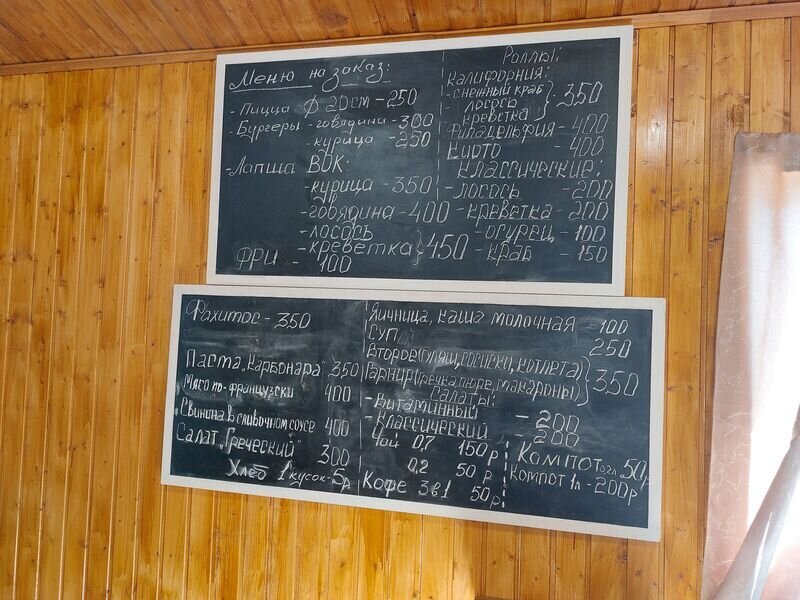 Меню на заказ:
- Пицца Ф 20см - 250
- Бургеры - говядина - 300
- курица - 250
- Лапша ВОК:
- курица - 350
- говядина - 400
- лосось
- креветка } 450
ФРИ - 100
Роллы:
Калифорния:
- снежный краб
- лосось } 350
креветка
Филадельфия - 400
Киото - 400
Классические:
- лосось - 200
- креветка - 200
- огурец - 100
- краб - 150
Фахитос - 350
Паста „Карбонара" 350
Мясо по-французски 400
Свинина в сливочном соусе 400
Салат „Греческий" 300
Хлеб 1 кусок - 5р
Яичница, каша молочная - 100
Суп 250
Второе (гуляш, сосиски, котлета)
Гарнир (гречка, пюре, макароны) } 350
Салаты:
- Витаминный - 200
- Классический - 200
Чай 0,7 150р
0,2 50р
Кофе 3в1 50р
Компот 0,2л 50р
Компот 1л - 200р